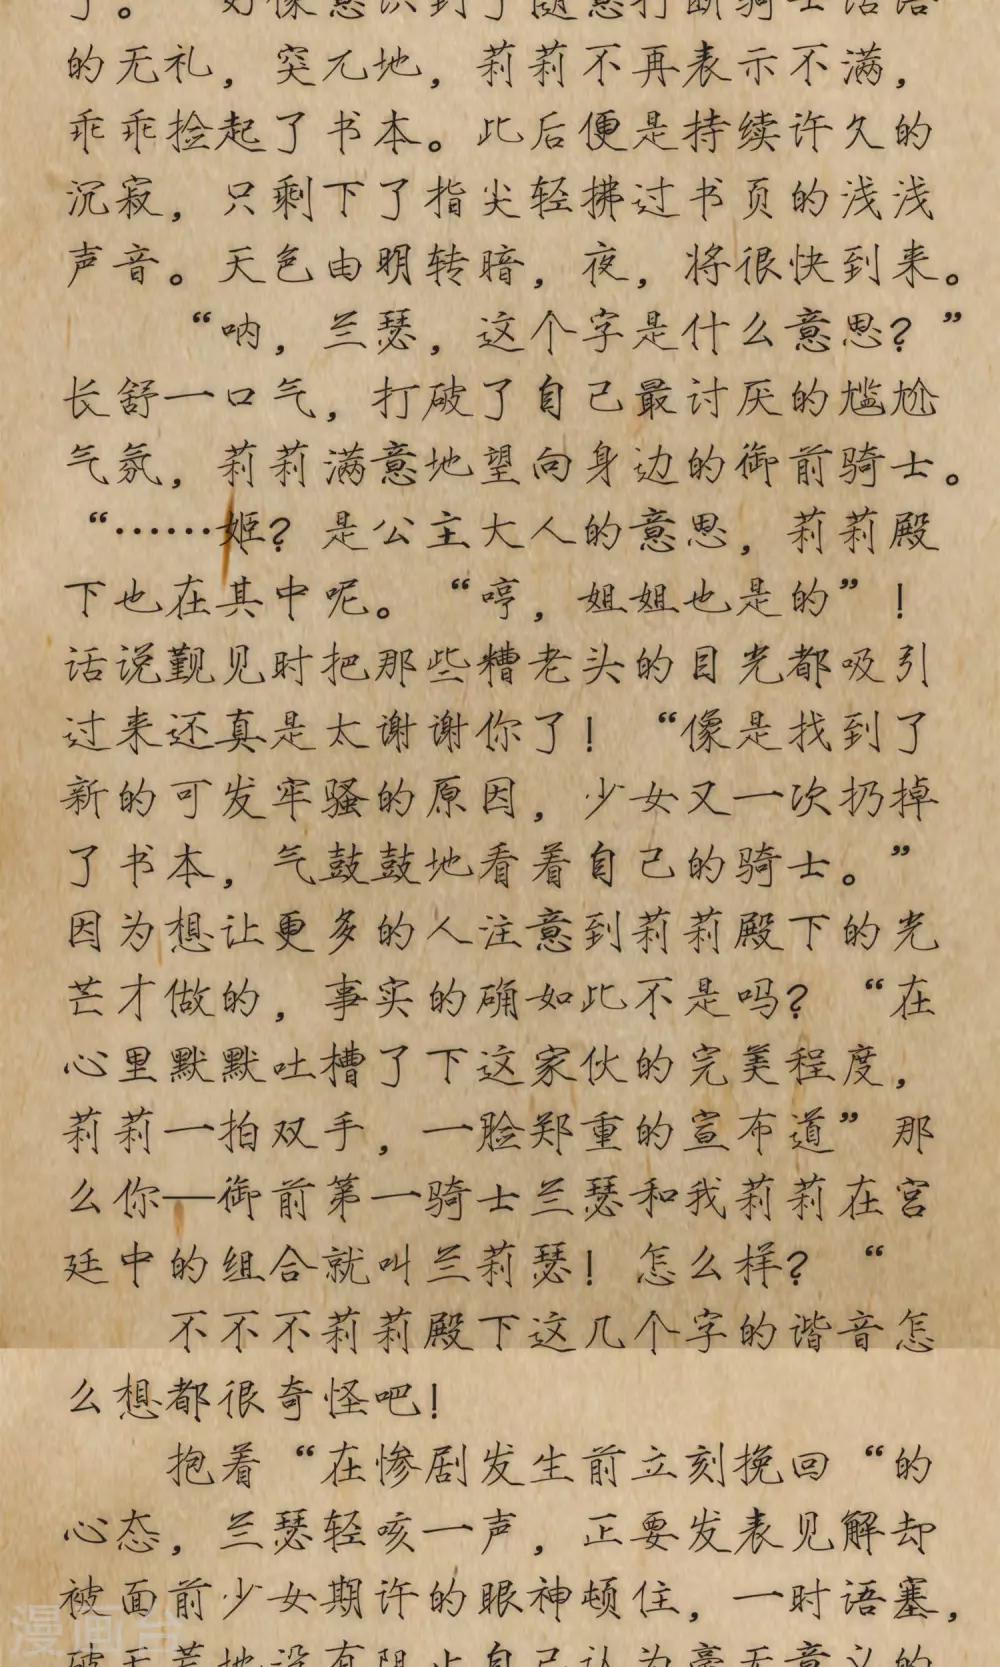 了。 好像意识到了随意打断骑士话语
的无礼，突兀地，莉莉不再表示不满，
乖乖捡起了书本。此后便是持续许久的
沉寂，只剩下了指尖轻拂过书页的浅浅
声音。天色由明转暗，夜，将很快到来。
“呐，兰瑟，这个字是什么意思？”
长舒一口气，打破了自己最讨厌的尴尬
气氛，莉莉满意地望向身边的御前骑士。
“……姬？是公主大人的意思，莉莉殿
下也在其中呢。“哼，姐姐也是的”！
话说觐见时把那些糟老头的目光都吸引
过来还真是太谢谢你了！“像是找到了
新的可发牢骚的原因，少女又一次扔掉
了书本，气鼓鼓地看着自己的骑士。”
因为想让更多的人注意到莉莉殿下的光
芒才做的，事实的确如此不是吗？“在
心里默默吐槽了下这家伙的完美程度，
莉莉一拍双手，一脸郑重的宣布道”那
么你—御前第一骑士兰瑟和我莉莉在宫
廷中的组合就叫兰莉瑟！怎么样？“
不不不莉莉殿下这几个字的谐音怎
么想都很奇怪吧！
抱着“在惨剧发生前立刻挽回“的
心态，兰瑟轻咳一声，正要发表见解却
被面前少女期许的眼神顿住，一时语塞，
破天荒地没有阻止自己认为毫无意义的
漫画台